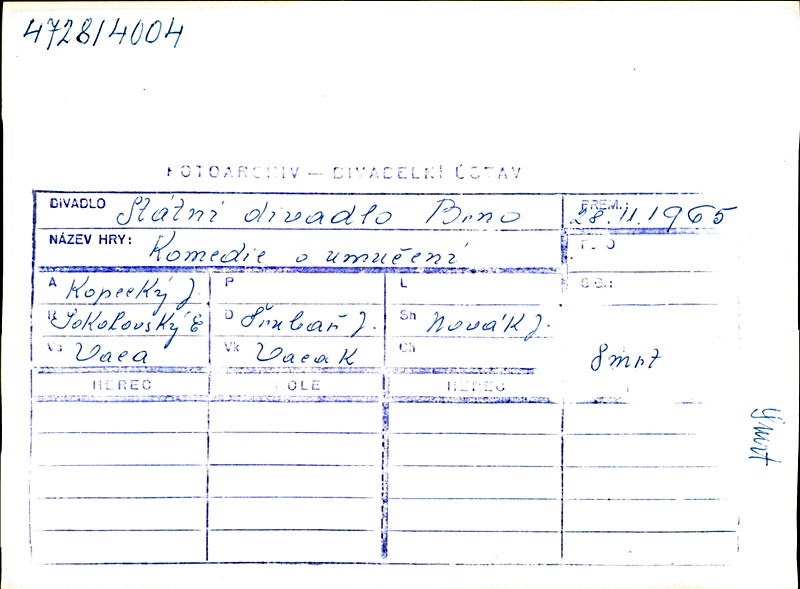 4728/4004
FOTOARCHIV — DIVADELNÍ ÚSTAV
DIVADLO Státní divadlo Brno PREM.: 28.11.1965
NÁZEV HRY: Komedie o umučení FOTO
A Kopecký J. P L
R Sokolovský E D Šrubař J. Sh Novák J.
Vs Vaca Vk Vaca K Ch
Smrt
HEREC ROLE HEREC
Smrt